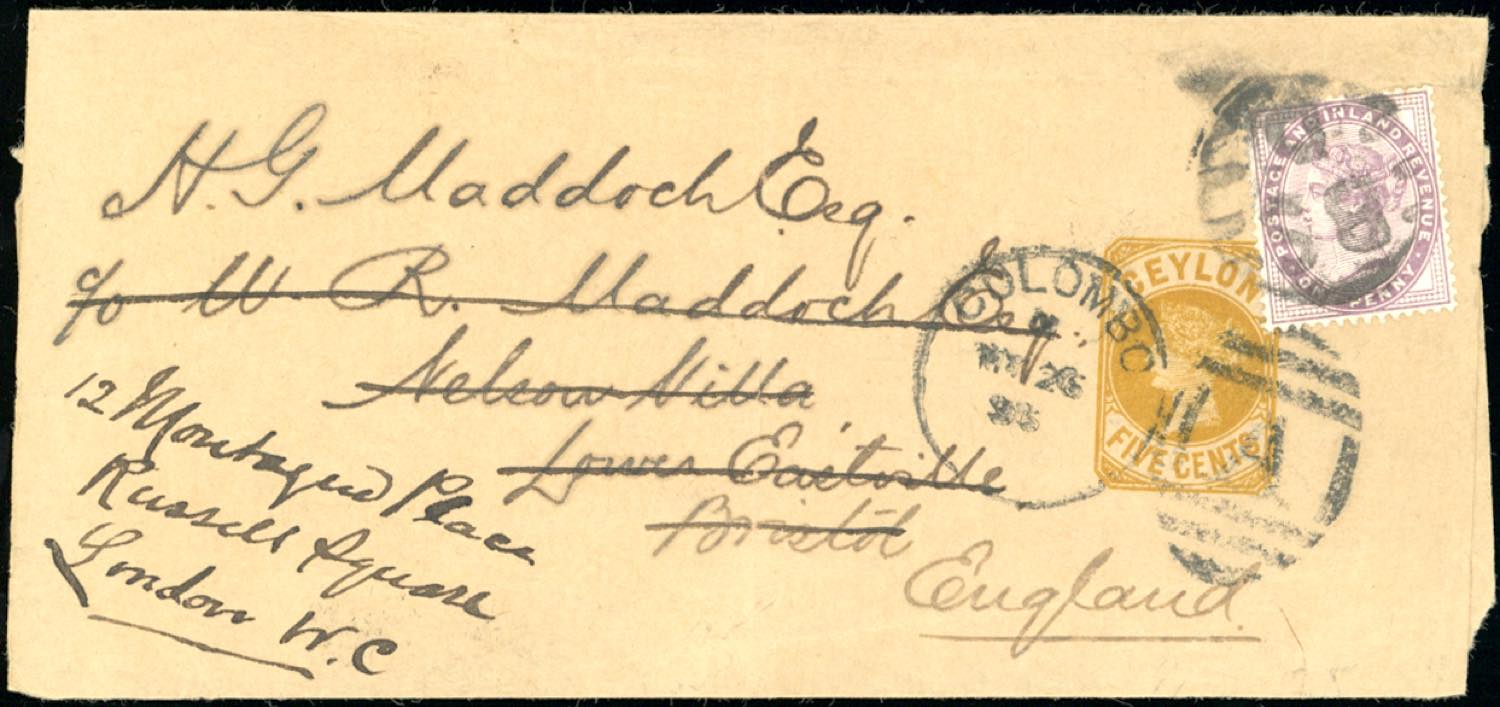 H. G. Maddoch Esq.
c/o W. R. Maddoch Esq.
Nelson Villa
Lower Eastville
Bristol
England
12 Montague Place
Russell Square
London W.C
COLOMBO
MY 26
CEYLON
FIVE CENTS
POSTAGE AND INLAND REVENUE
ONE PENNY